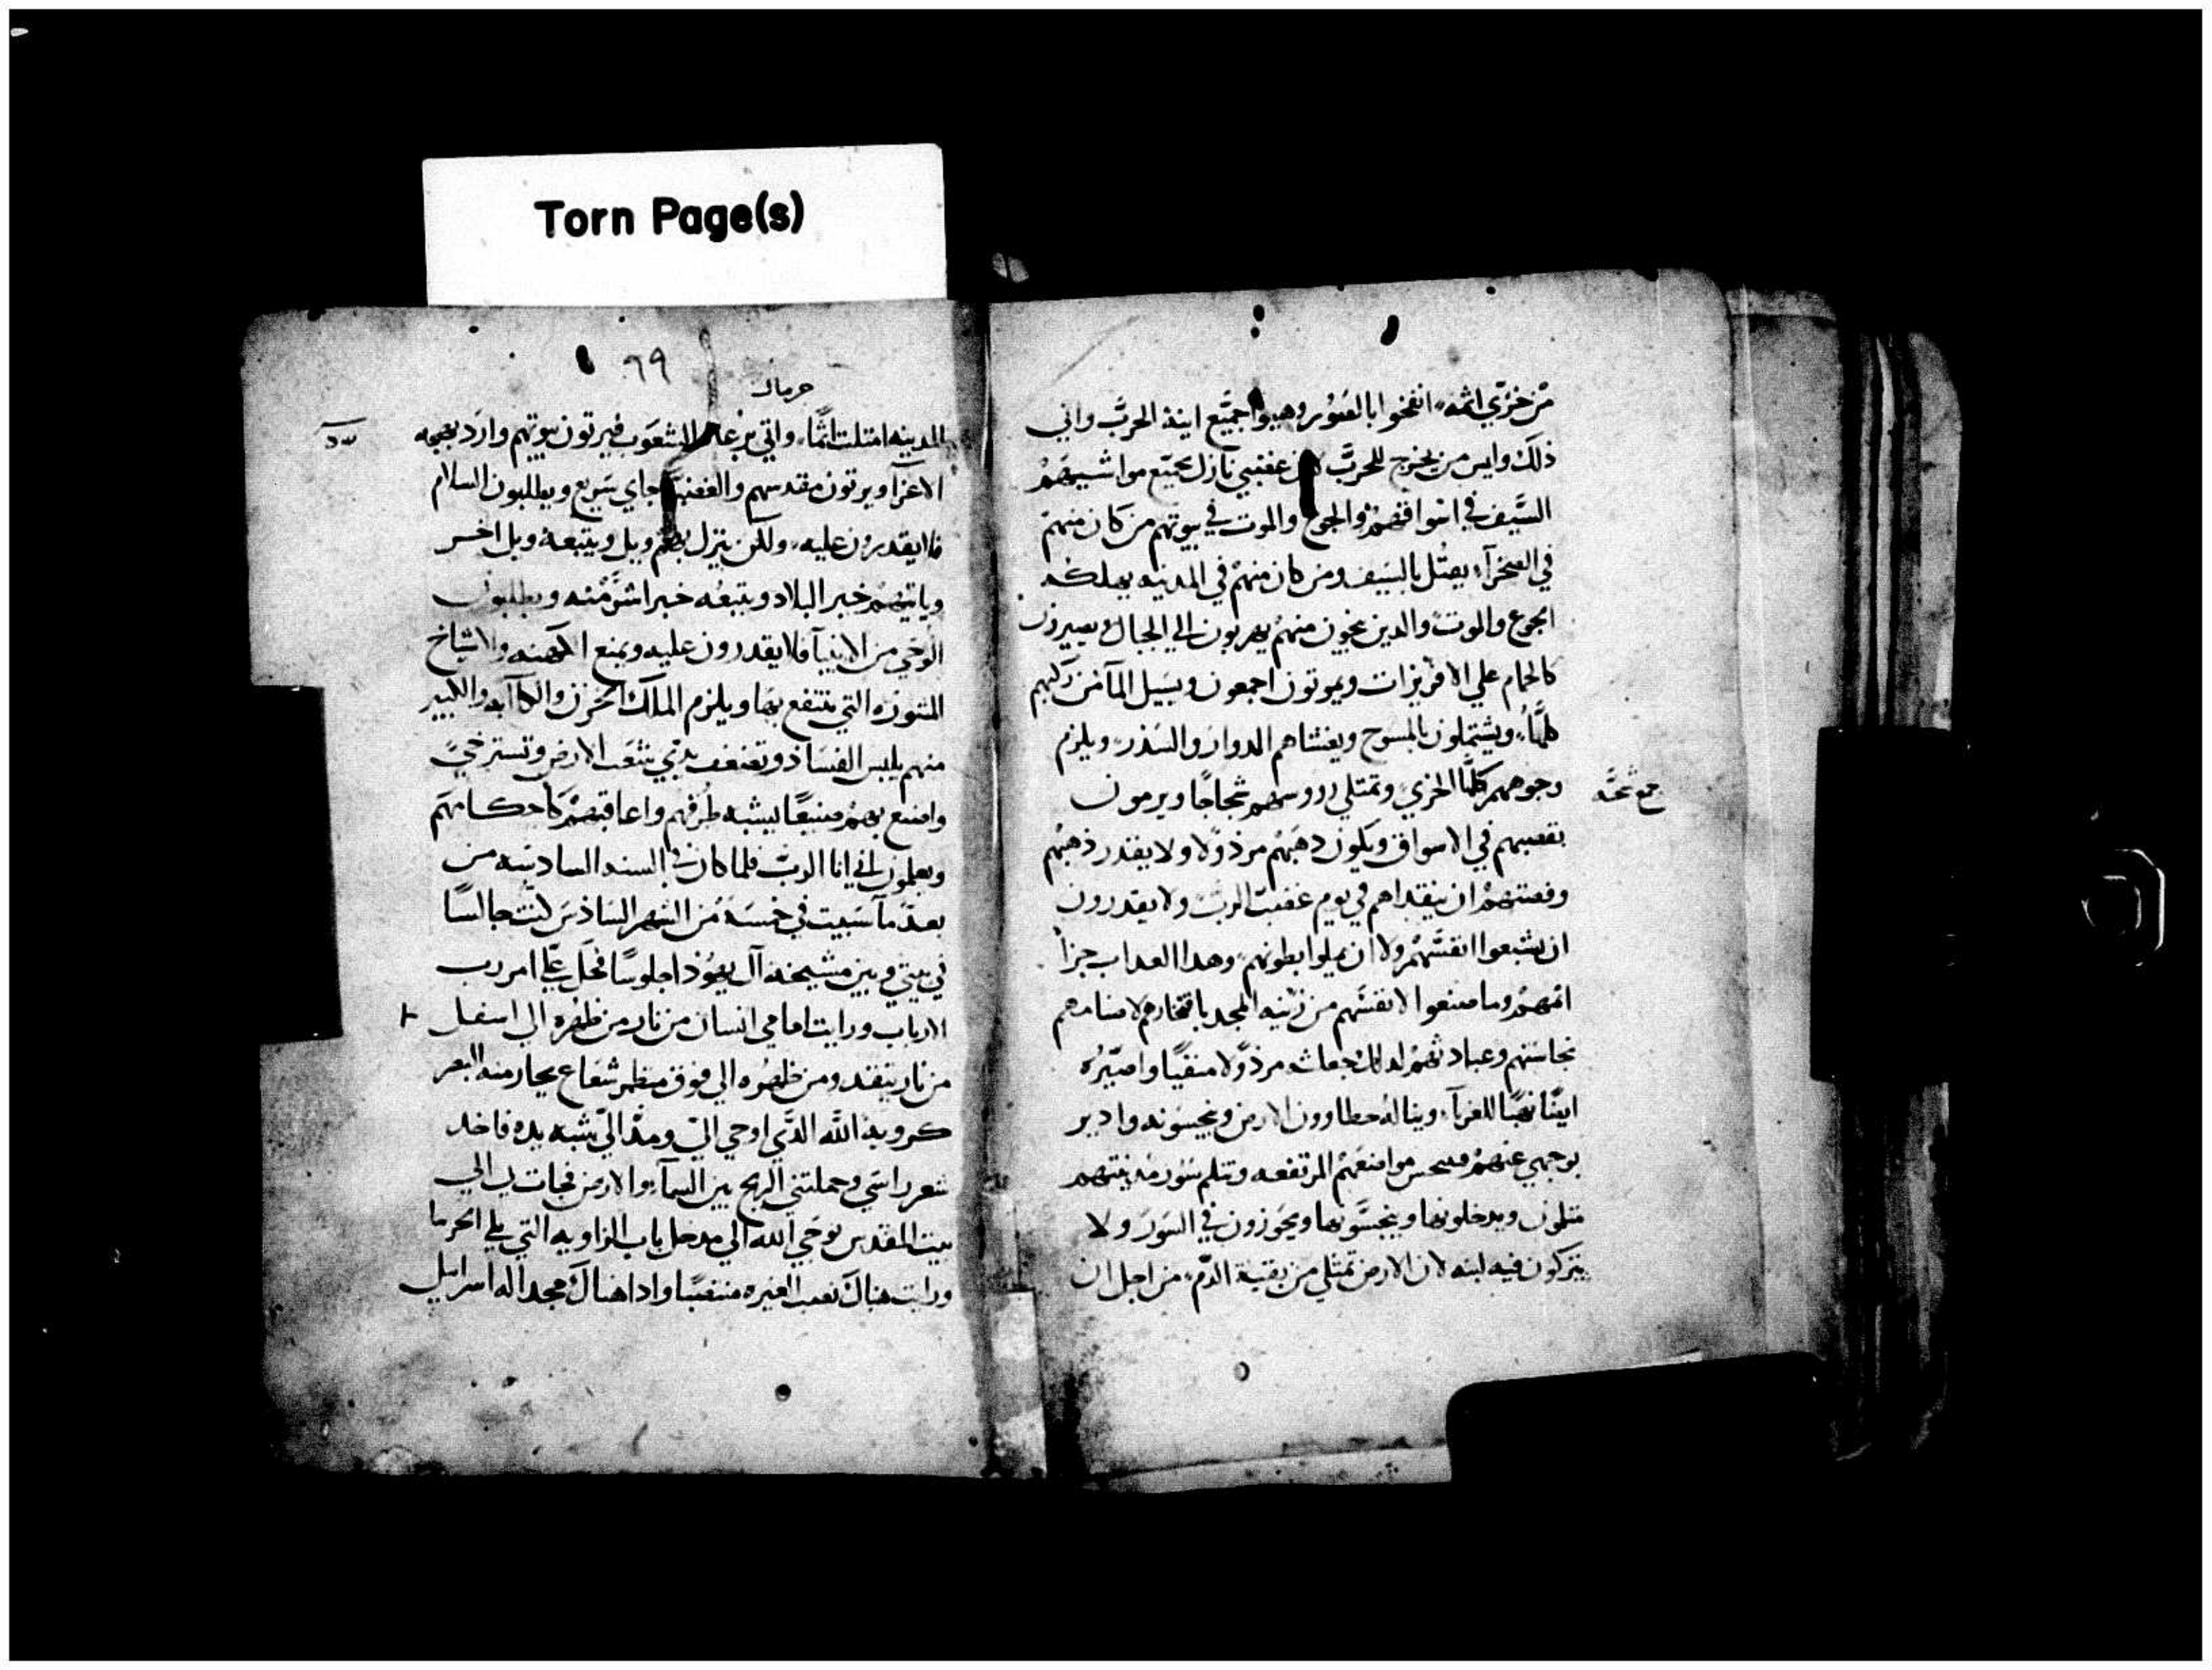 Torn Page(s)
من خزي اثمه انفخوا بالصور وهيوا جميع اينة الحرب واني
ذلك وايس من يخرج للحرب لان غضبي نازل بجميع مواشيهم
السيف في اسواقهم والجوع والموت في بيوتهم من كان منهم
في الصحرآء يقتل بالسيف ومن كان منهم في المدينه يهلكه
الجوع والموت والدين ينجون منهم يهربون الي الجبال ويصيرون
كالحمام علي الافريزات ويموتون اجمعون ويسيل المآ من ركبهم
كلها ويشتملون بالمسوح ويغشاهم الدوار والسدر ويلزم
وجوههم كلها الخزي وتمتلي رووسهم شجاجا ويرمون
بفضتهم في الاسواق ويكون دهبهم مرذولا ولا يقدر ذهبهم
وفضتهم ان ينقداهم في يوم غضب الرب ولا يقدرون
ان يشبعوا انفسهم ولا ان يملوا بطونهم وهدا العداب جزآ
اثمهم وما صنعوا لانفسهم من زينه المجد بافتخارهم لاصنامهم
نجاستهم وعبادتهم لدلك جعلته مرذولا منفيا واصيره
ايضا نهبا للغربآ ويناله خطاوون الارض وينجسونه وادير
بوجهي عنهم موامنعهم المرتفعه وتثلم سور مدينتهم
ويدخلونها وينجسونها ويجوزون في السور ولا
يتركون فيه لبنه لان الارض تمتلي من بقية الدم من اجل ان
٦٩
حزقيال
المدينه امتلت اثما واتي الشعوب فيرتون بيوتهم وارد بهجه
الاعزآ ويرتون مقدسهم والغضب جاي سريع ويطلبون السلام
فلا يقدرون عليه ولكن ينزل بهم ويل ويتبعه ويل اخر
وياتيهم خبر البلاد ويتبعه خبر اشر منه ويطلبون
الوحي من الانبيآ فلا يقدرون عليه ويمنع الكهنه والاشياخ
المشوره التي ينتفع بها ويلزم الملك الحزن والكآبه والكبير
منهم يلبس الفساد وتضعف يدي شعب الارض وتسترخي
واصنع بهم صنيعا يشبه طرقهم واعاقبهم كاحكامهم
ويعلمون اني انا الرب فلما كان في السنه السادسه من
بعد ما سبيت في خمسة من الشهر السادس كنت جالسا
في بيتي وبين مشيخة آل يهوذا جلوسا فحل علي امر رب
الارباب ورايت امامي انسان من نار من ظهره الي اسفل
من نار يتقد ومن ظهره الي فوق منظر شعاع يحار منه البصر
كروية الله الدي اوحي الي ومد الي شبه يده فاخد
شعر راسي وحملتني الريح بين السمآ والارض فجات بي الي
بيت المقدس بوحي الله الي مدخل باب الزاويه التي تلي الجربيا
ورايت هناك نصب الغيره منتصبا وادا هناك مجد اله اسراييل